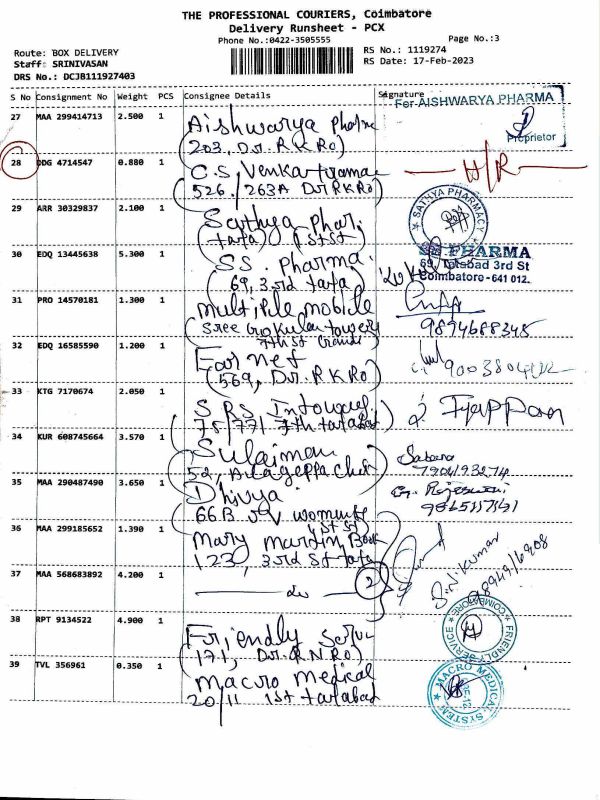 THE PROFESSIONAL COURIERS, Coimbatore
Delivery Runsheet - PCX
Phone No.:0422-3505555
Page No.:3
Route: BOX DELIVERY
Staff: SRINIVASAN
DRS No.: DCJB111927403
RS No.: 1119274
RS Date: 17-Feb-2023
S No Consignment No Weight PCS Consignee Details Signature
27 MAA 299414713 2.500 1 Aishwarya
203, Dr. R K RO)
For AISHWARYA PHARMA
Proprietor
28 DDG 4714547 0.880 1 C.S. Venkatraman
526/263A Dr R K RO)
H/R
29 ARR 30329837 2.100 1 Sathya Phar.
tata) 1st st
SATHYA PHARMACY
30 EDQ 13445638 5.300 1 SS. Pharma.
69, 3rd tata
SS PHARMA
69, Tatabad 3rd St
Coimbatore - 641 012.
31 PRO 14570181 1.300 1 multiple mobile
Sree Gokulam towers
7th st
9894688345
32 EDQ 16585590 1.200 1
(569, Dr. R K RO)
33 KTG 7170674 2.050 1 SRS
75/77, 7th tatabad
34 KUR 608745664 3.570 1 Sulaiman
52, Alageppa chet
Sabana
7904193274
35 MAA 290487490 3.650 1 Dhivya
66B
36 MAA 299185652 1.390 1 Mary Martin Book
123, 3rd St tata
S.N. Kumar
37 MAA 568683892 4.200 1 do 2
38 RPT 9134522 4.900 1 Friendly Servi
(171, Dr. R.N.RO)
FRIENDLY SERVICE
COIMBATORE
39 TVL 356961 0.350 1 macro medical
20/11 1st tatabad
MACRO MEDICAL SYSTEM